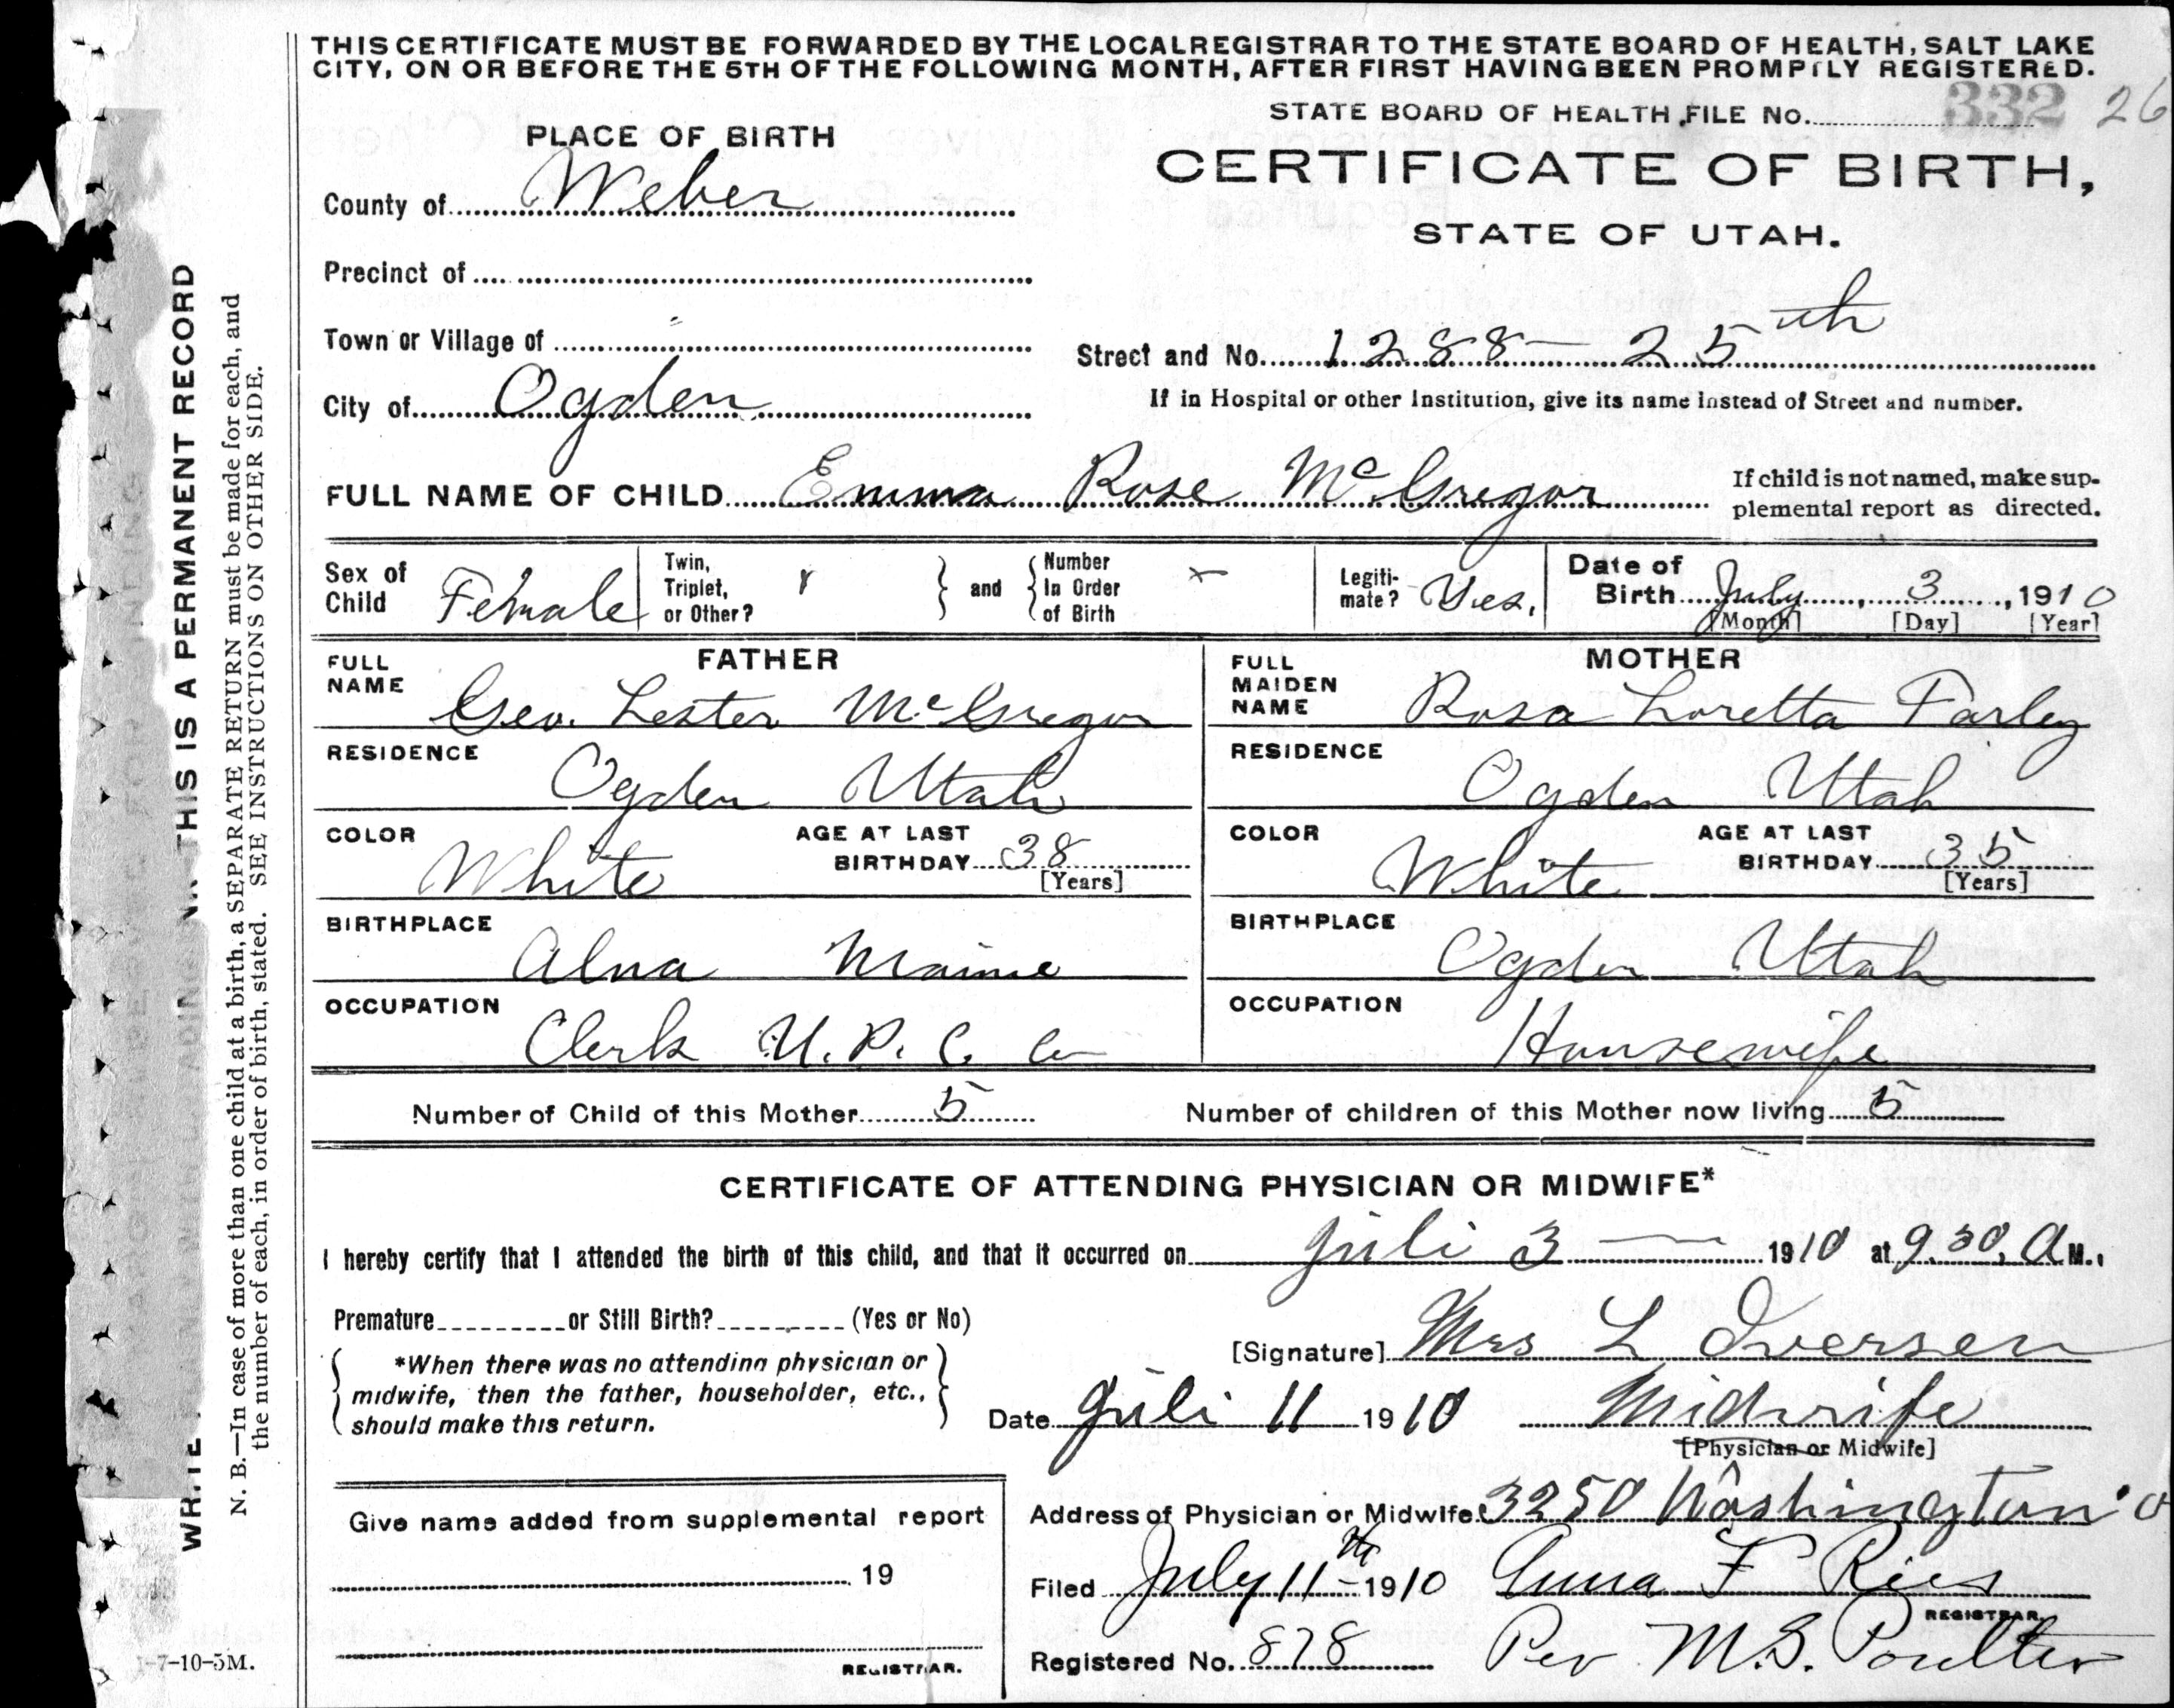 THIS CERTIFICATE MUST BE FORWARDED BY THE LOCAL REGISTRAR TO THE STATE BOARD OF HEALTH, SALT LAKE
CITY, ON OR BEFORE THE 5TH OF THE FOLLOWING MONTH, AFTER FIRST HAVING BEEN PROMPTLY REGISTERED.
STATE BOARD OF HEALTH FILE No. 332 26
PLACE OF BIRTH
CERTIFICATE OF BIRTH,
STATE OF UTAH.
County of Weber
Precinct of
Town or Village of
Street and No. 1288 — 25th
City of Ogden
If in Hospital or other Institution, give its name instead of Street and number.
FULL NAME OF CHILD Emma Rose McGregor
If child is not named, make sup-
plemental report as directed.
Sex of Child Female
Twin, Triplet, or Other?
and
Number In Order of Birth
Legiti-mate? Yes.
Date of Birth July, 3, 1910
[Month] [Day] [Year]
FATHER
FULL NAME Geo. Lester McGregor
RESIDENCE Ogden Utah
COLOR White
AGE AT LAST BIRTHDAY 38
[Years]
BIRTHPLACE Alna Maine
OCCUPATION Clerk U. P. C. Co
MOTHER
FULL MAIDEN NAME Rosa Loretta Farley
RESIDENCE Ogden Utah
COLOR White
AGE AT LAST BIRTHDAY 35
[Years]
BIRTHPLACE Ogden Utah
OCCUPATION Housewife
Number of Child of this Mother 5
Number of children of this Mother now living 5
CERTIFICATE OF ATTENDING PHYSICIAN OR MIDWIFE*
I hereby certify that I attended the birth of this child, and that it occurred on Juli 3 — 1910 at 9.30, A M.,
Premature or Still Birth? (Yes or No)
[Signature] Mrs L Iversen
*When there was no attending physician or
midwife, then the father, householder, etc.,
should make this return.
Date Juli 11 1910 Midwife
[Physician or Midwife]
Give name added from supplemental report
19
REGISTRAR.
Address of Physician or Midwife 3250 Washington
Filed July 11th 1910 Anna F Ries
REGISTRAR.
Registered No. 878 Per M.S. Poulter
1-7-10-5M.
THIS IS A PERMANENT RECORD
N. B.—In case of more than one child at a birth, a SEPARATE RETURN must be made for each, and
the number of each, in order of birth, stated. SEE INSTRUCTIONS ON OTHER SIDE.